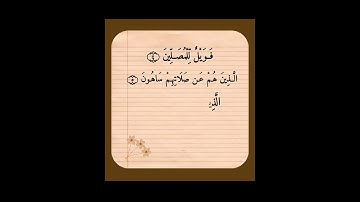 فَوَيْلٌ لِّلْمُصَلِّينَ ﴿٤﴾
الَّذِينَ هُمْ عَن صَلَاتِهِمْ سَاهُونَ ﴿٥﴾
الَّذِ